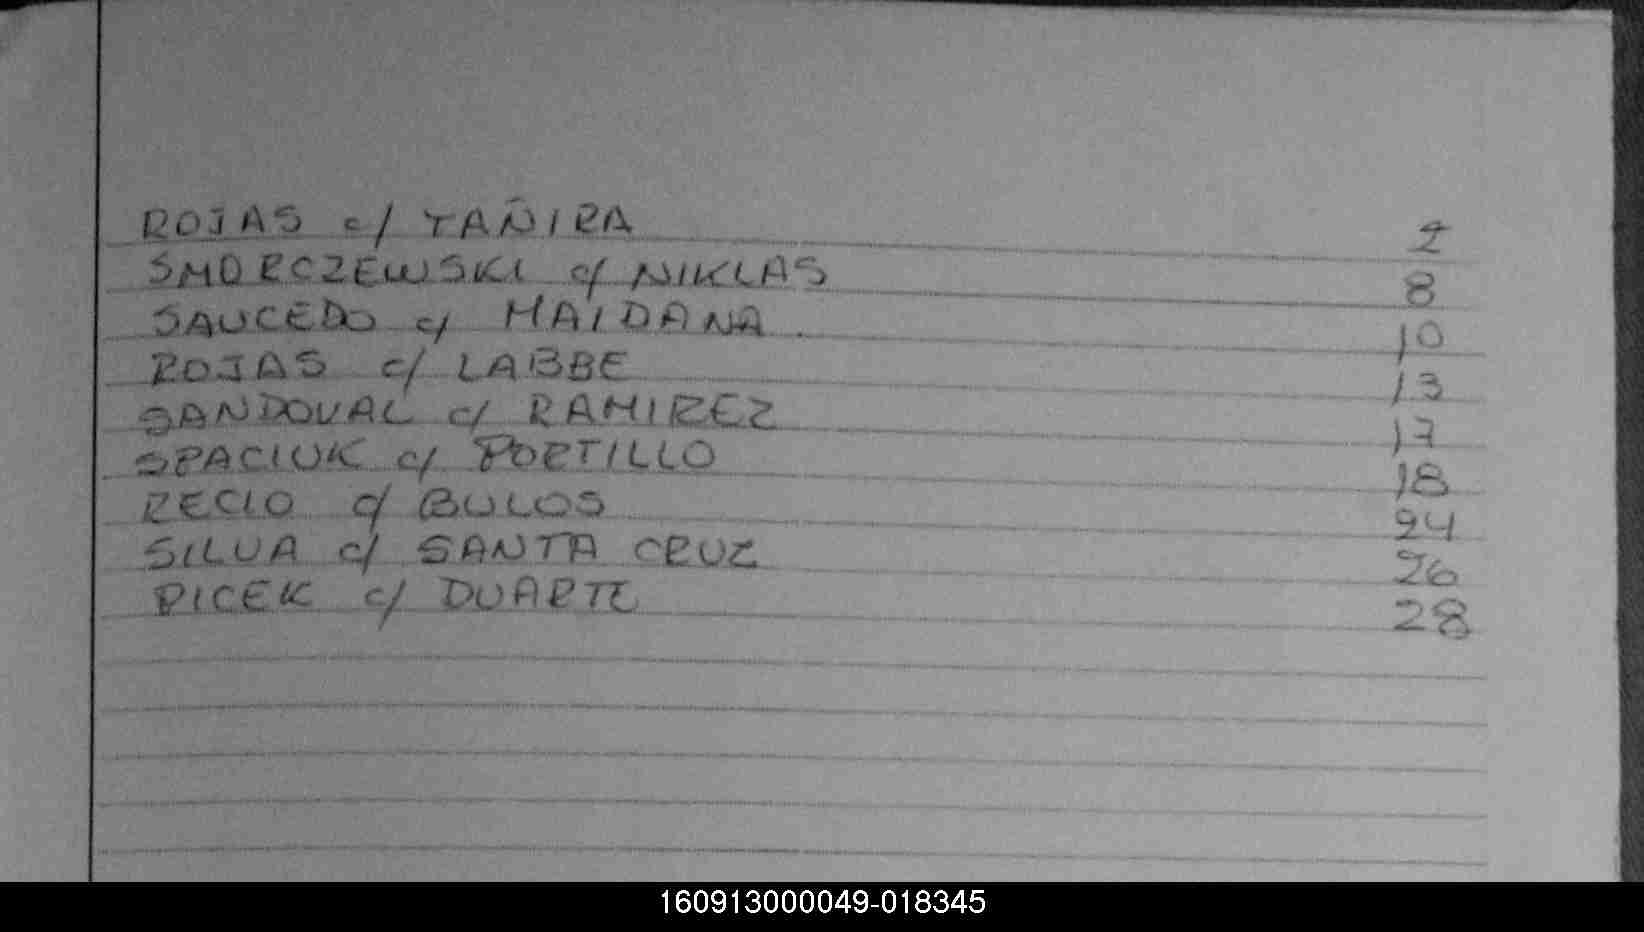 ROJAS c/ TAÑIRA 2
SMORCZEWSKI c/ NIKLAS 8
SAUCEDO c/ MAIDANA. 10
ROJAS c/ LABBE 13
SANDOVAL c/ RAMIREZ 17
SPACIUK c/ PORTILLO 18
RECIO c/ BULOS 24
SILVA c/ SANTA CRUZ 26
PICEK c/ DUARTE 28
160913000049-018345